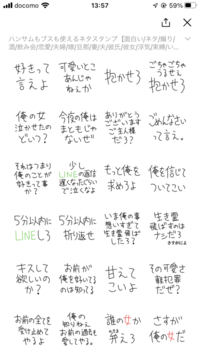 docomo 13:57
ハンサムもブスも使えるネタスタンプ【面白い/ネタ/煽り/
酒/飲み会/恋愛/夫婦/嫁/旦那/妻/夫/彼氏/彼女/浮気/束縛/い...
好きって
言えよ
可愛いとこ
あんじゃねぇか
抱かせろ
ごちゃごちゃ
うるせえ
抱かせろ
俺の女
泣かせたの
どいつ?
今夜の俺は
まともじゃ
ないぜ
ありがとう
ございます
ご主人様
だろ?
ごめんなさい
って言え。
それはつまり
俺のことが
好きって事
か?
少し
LINEの返信
遅くなったぐらい
で泣くなよ
もっと俺を
求めろよ
俺を信じて
ついてこい
5分以内に
LINEしろ
5分以内に
折り返せ
いま俺の事
想いすぎて
生き霊
飛ばした
ろ?
生き霊
飛ばすのは
ナシだろ
さすがによ
キスして
欲しいのか
?
お前が
俺を好いてる
のは知ってる
甘えて
こいよ
その可愛さ
犯罪
だぜ?
お前の全てを
受け止めて
やるよ
俺の
知りねぇ
お前の過去も
愛してやるよ
誰の女か
答えろ
さすが
俺の女だ